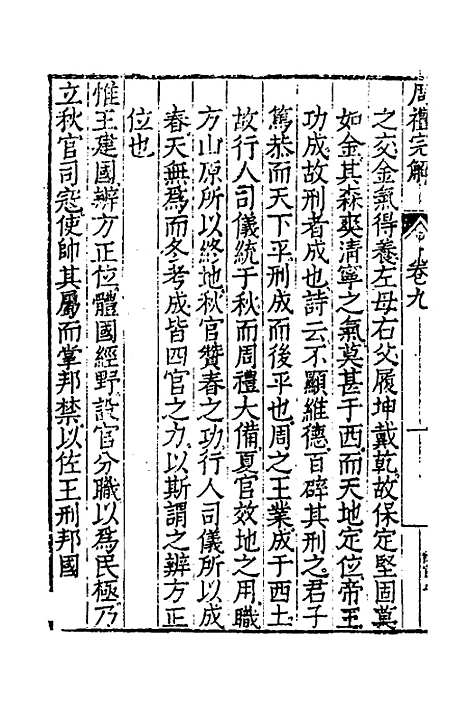 周禮完解 卷九
之交金氣得養左母右父履坤戴乾故保定堅固莫
如金其森爽清寧之氣莫甚于西而天地定位帝王
功成故刑者成也詩云不顯維德百辟其刑之君子
篤恭而天下平刑成而後平也周之王業成于西土
故行人司儀統于秋而周禮大備夏官效地之用職
方山原所以終地秋官贊春之功行人司儀所以成
春天無爲而冬考成皆四官之力以斯謂之辨方正
位也
惟王建國辨方正位體國經野設官分職以爲民極乃
立秋官司寇使帥其屬而掌邦禁以佐王刑邦國